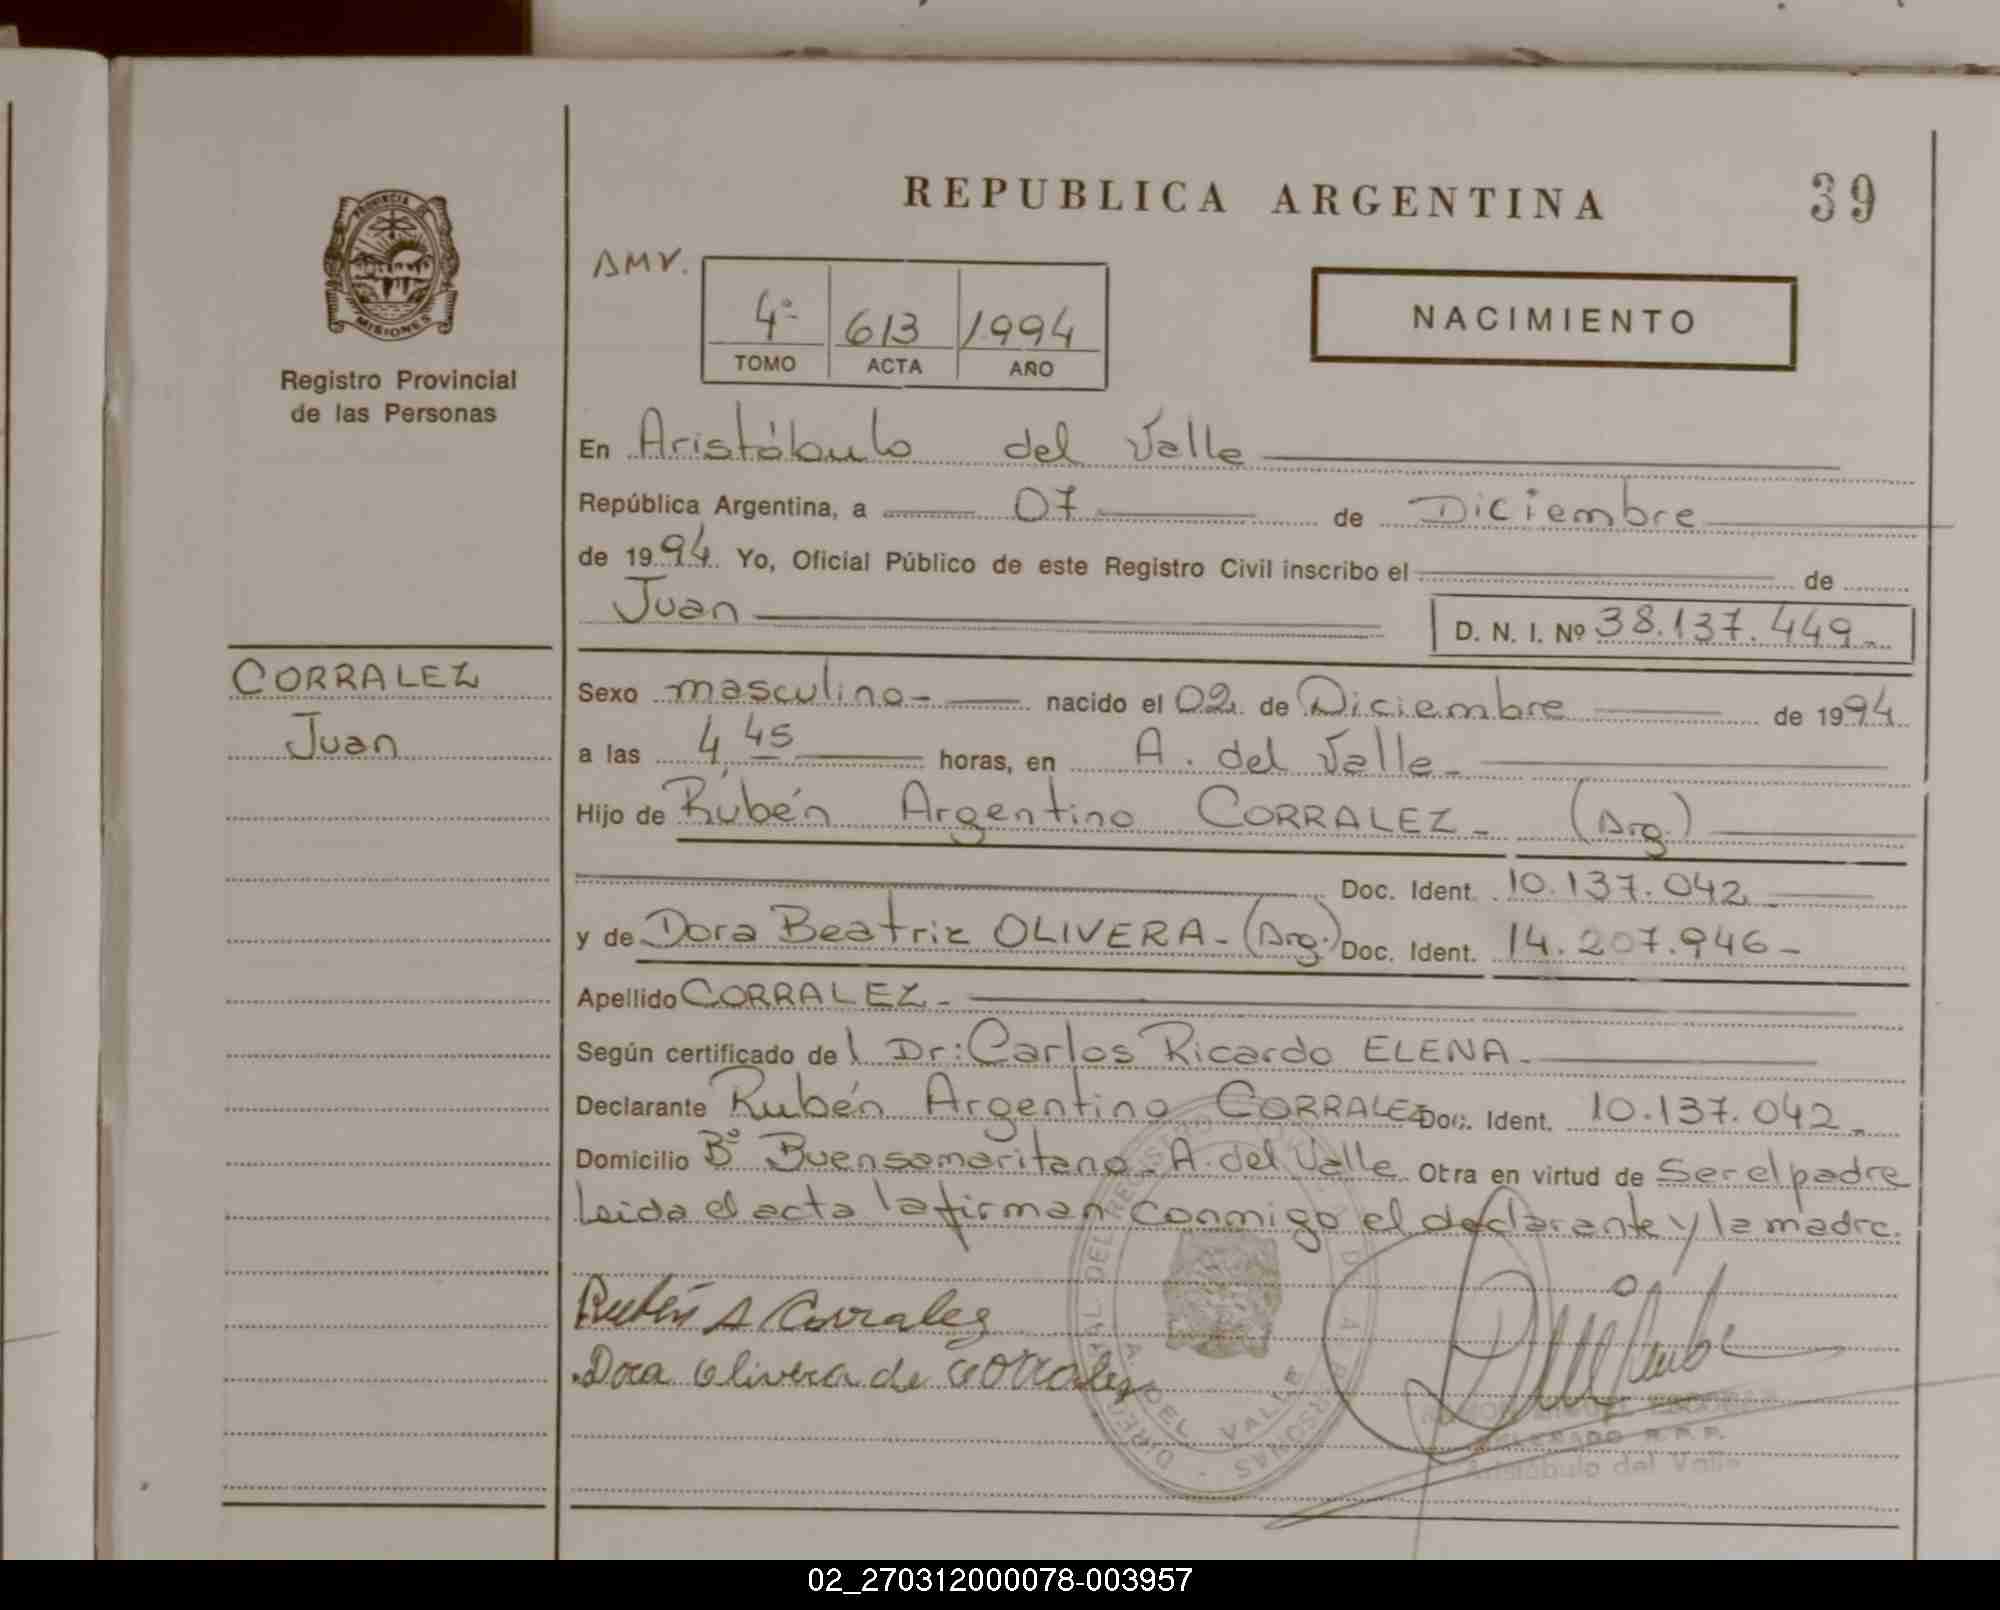 REPUBLICA ARGENTINA
39
PROVINCIA DE
MISIONES
Registro Provincial
de las Personas
AMV.
4º 613 1994
TOMO ACTA AÑO
NACIMIENTO
En Aristóbulo del Valle
República Argentina, a 07 de Diciembre
de 1994. Yo, Oficial Público de este Registro Civil inscribo el de
Juan
D. N. I. Nº 38.137.449
CORRALEZ
Juan
Sexo masculino nacido el 02 de Diciembre de 1994
a las 4,45 horas, en A. del Valle
Hijo de Rubén Argentino CORRALEZ (Arg.)
Doc. Ident. 10.137.042
y de Dora Beatriz OLIVERA (Arg.) Doc. Ident. 14.207.946
Apellido CORRALEZ
Según certificado de l Dr: Carlos Ricardo ELENA
Declarante Rubén Argentino CORRALEZ Doc. Ident. 10.137.042
Domicilio Bº Buensamaritano A. del Valle Otra en virtud de Ser el padre
Leida el acta la firman conmigo el declarante y la madre.
Rubén A Corralez
Dora Olivera de Corralez
A. DEL VALLE
DELEGADO R.P.P.
Aristóbulo del Valle
02_270312000078-003957